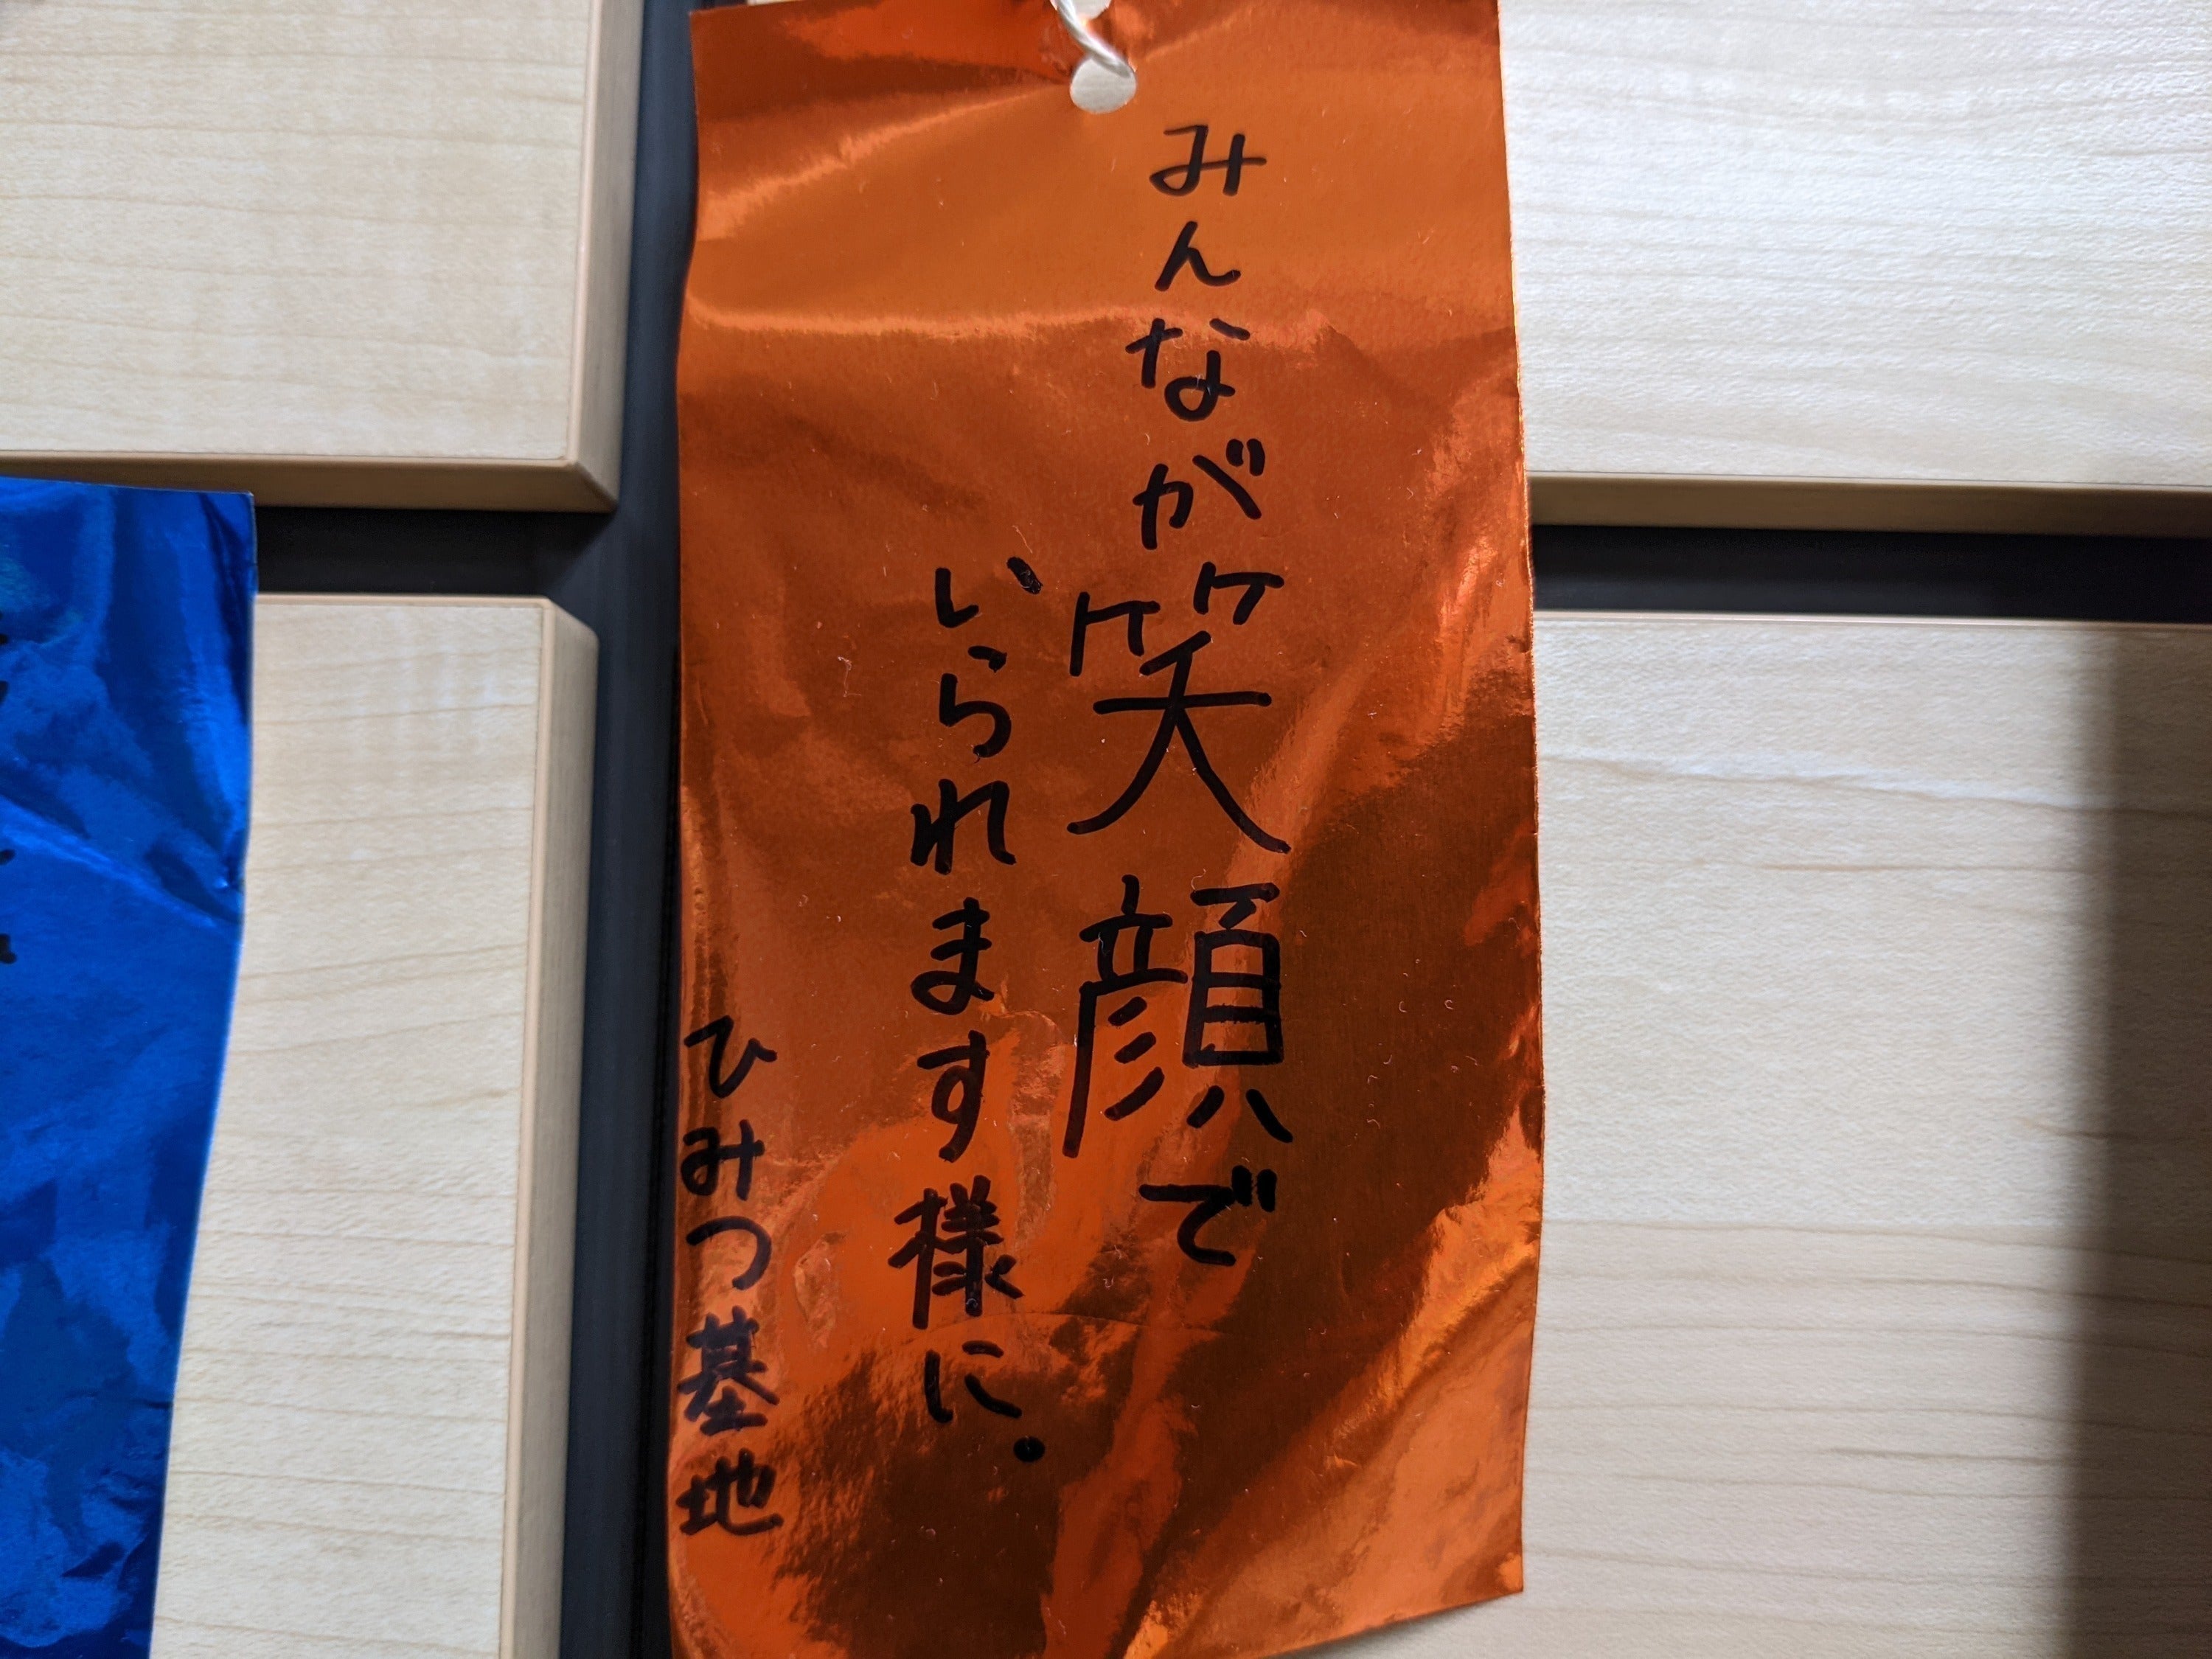 みんなが笑顔で
いられます様に。
ひみつ基地